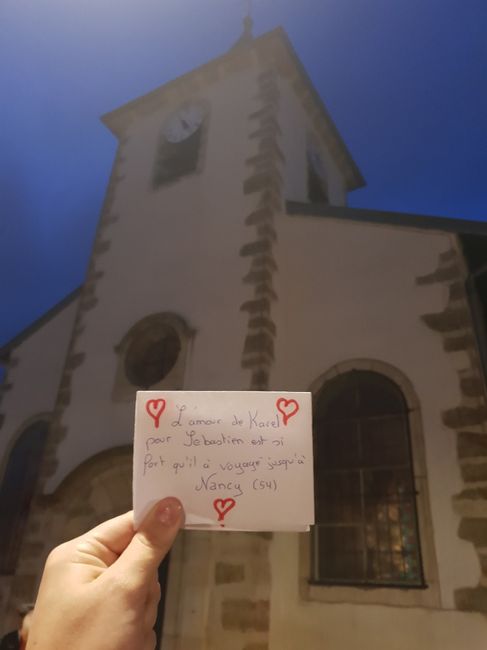 L'amour de Karel
pour Sebastien est si
fort qu'il à voyagé jusqu'à
Nancy (54)